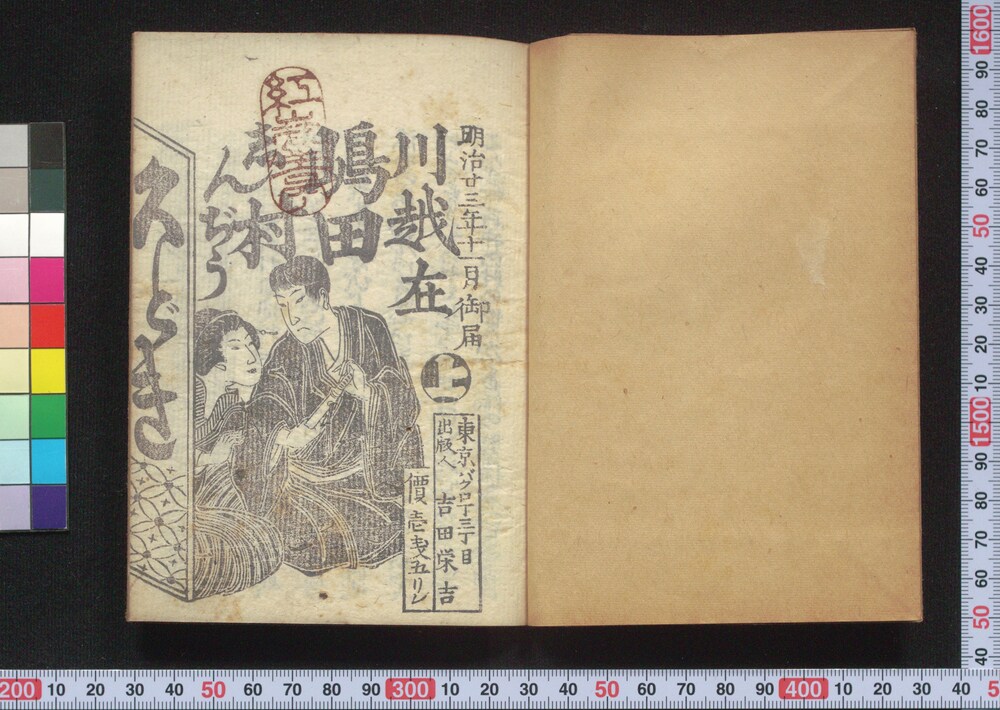 明治廿三年十一月御届
川越在
嶋田村
んぢう
くどき
上
東京バクロ丁三丁目
出版人 吉田栄吉
價壱戔五リン
紅
200 10 20 30 40 50 60 70 80 90 300 10 20 30 40 50 60 70 80 90 400 10 20 30 40 5
1600 90 80 70 60 50 40 30 20 10 1500 90 80 70 60 50 40